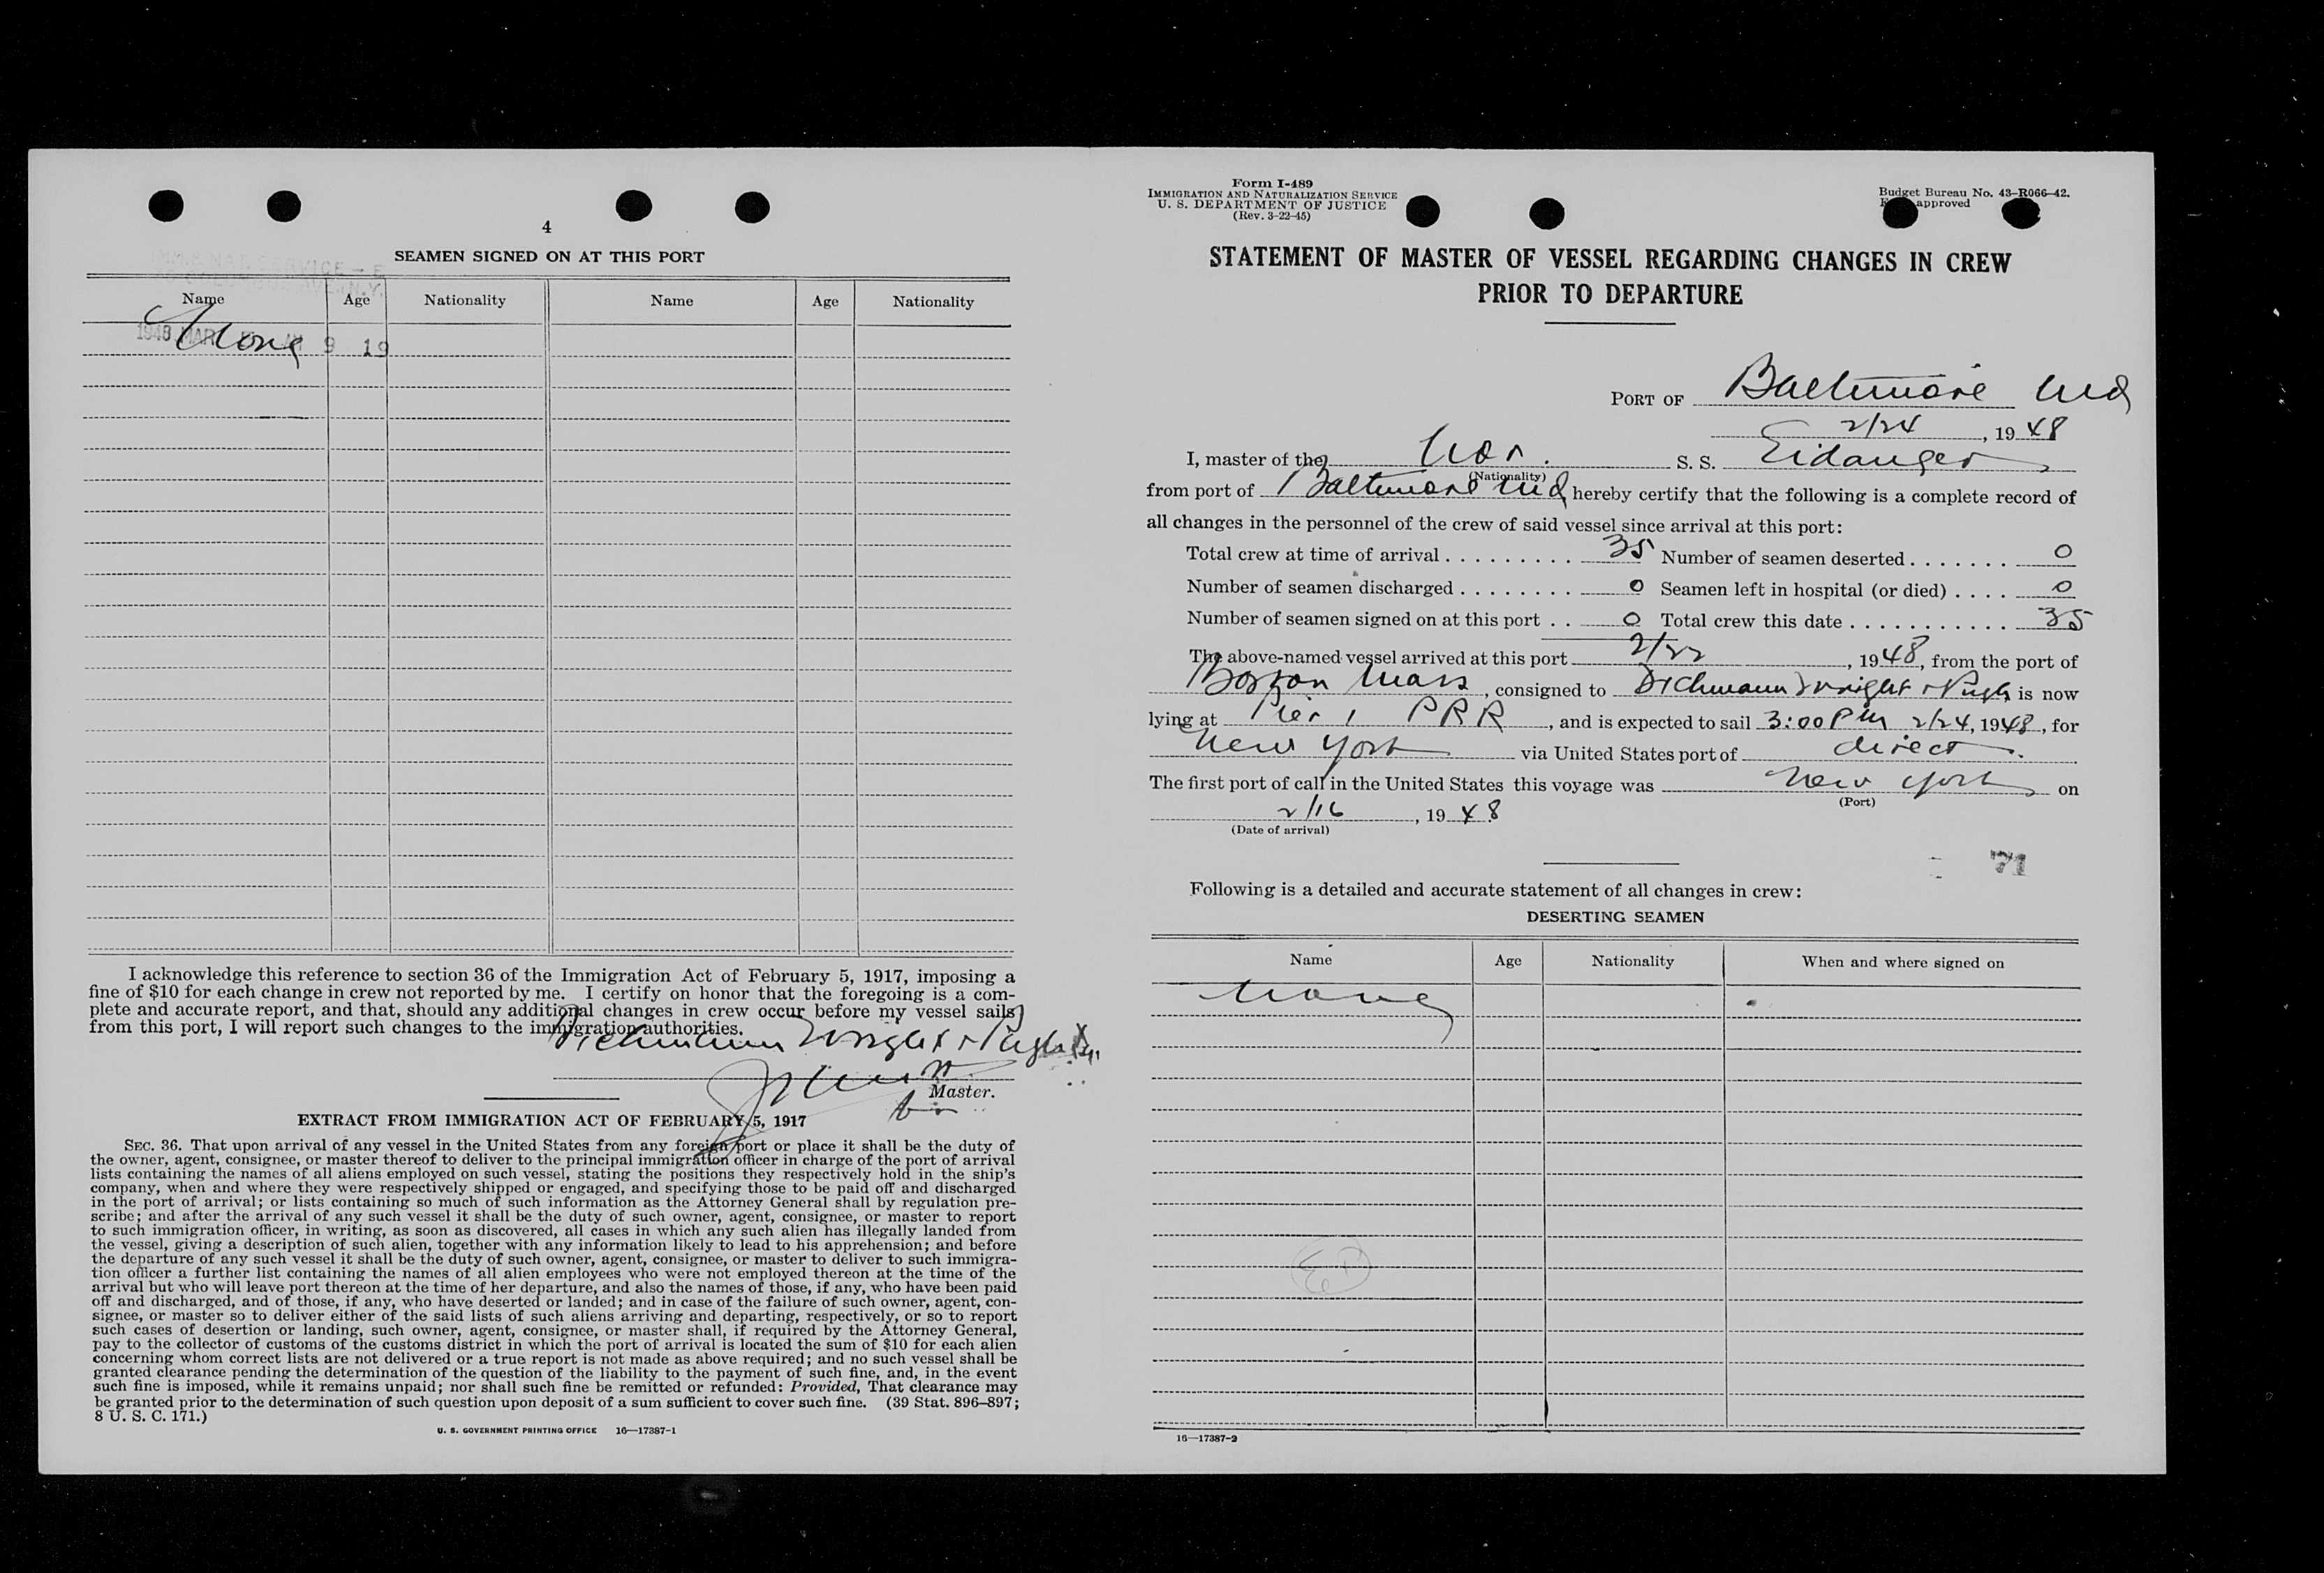 4
SEAMEN SIGNED ON AT THIS PORT
Name Age Nationality Name Age Nationality
None
1948 MAR 9 19
I acknowledge this reference to section 36 of the Immigration Act of February 5, 1917, imposing a
fine of $10 for each change in crew not reported by me. I certify on honor that the foregoing is a com-
plete and accurate report, and that, should any additional changes in crew occur before my vessel sails
from this port, I will report such changes to the immigration authorities.
Dichmann Wright & Pugh
Master.
EXTRACT FROM IMMIGRATION ACT OF FEBRUARY 5, 1917
SEC. 36. That upon arrival of any vessel in the United States from any foreign port or place it shall be the duty of
the owner, agent, consignee, or master thereof to deliver to the principal immigration officer in charge of the port of arrival
lists containing the names of all aliens employed on such vessel, stating the positions they respectively hold in the ship's
company, when and where they were respectively shipped or engaged, and specifying those to be paid off and discharged
in the port of arrival; or lists containing so much of such information as the Attorney General shall by regulation pre-
scribe; and after the arrival of any such vessel it shall be the duty of such owner, agent, consignee, or master to report
to such immigration officer, in writing, as soon as discovered, all cases in which any such alien has illegally landed from
the vessel, giving a description of such alien, together with any information likely to lead to his apprehension; and before
the departure of any such vessel it shall be the duty of such owner, agent, consignee, or master to deliver to such immigra-
tion officer a further list containing the names of all alien employees who were not employed thereon at the time of the
arrival but who will leave port thereon at the time of her departure, and also the names of those, if any, who have been paid
off and discharged, and of those, if any, who have deserted or landed; and in case of the failure of such owner, agent, con-
signee, or master so to deliver either of the said lists of such aliens arriving and departing, respectively, or so to report
such cases of desertion or landing, such owner, agent, consignee, or master shall, if required by the Attorney General,
pay to the collector of customs of the customs district in which the port of arrival is located the sum of $10 for each alien
concerning whom correct lists are not delivered or a true report is not made as above required; and no such vessel shall be
granted clearance pending the determination of the question of the liability to the payment of such fine, and, in the event
such fine is imposed, while it remains unpaid; nor shall such fine be remitted or refunded: Provided, That clearance may
be granted prior to the determination of such question upon deposit of a sum sufficient to cover such fine. (39 Stat. 896–897;
8 U. S. C. 171.)
U. S. GOVERNMENT PRINTING OFFICE 16—17387-1
Form I-489
IMMIGRATION AND NATURALIZATION SERVICE
U. S. DEPARTMENT OF JUSTICE
(Rev. 3-22-45)
Budget Bureau No. 43-R066-42.
approved
STATEMENT OF MASTER OF VESSEL REGARDING CHANGES IN CREW
PRIOR TO DEPARTURE
PORT OF Baltimore Md
2/24, 1948
I, master of the Nor. S. S. Eidanger
(Nationality)
from port of Baltimore Md hereby certify that the following is a complete record of
all changes in the personnel of the crew of said vessel since arrival at this port:
Total crew at time of arrival . . . . . . . . . 35 Number of seamen deserted . . . . . . . 0
Number of seamen discharged . . . . . . . . 0 Seamen left in hospital (or died) . . . . 0
Number of seamen signed on at this port . . 0 Total crew this date . . . . . . . . . . . 35
The above-named vessel arrived at this port 2/22, 1948, from the port of
Boston Mass, consigned to Dichmann Wright & Pugh is now
lying at Pier 1 PRR, and is expected to sail 3:00 PM 2/24, 1948, for
New York via United States port of direct.
The first port of call in the United States this voyage was New York on
(Port)
2/16, 1948
(Date of arrival)
71
Following is a detailed and accurate statement of all changes in crew:
DESERTING SEAMEN
Name Age Nationality When and where signed on
None
16—17387-2